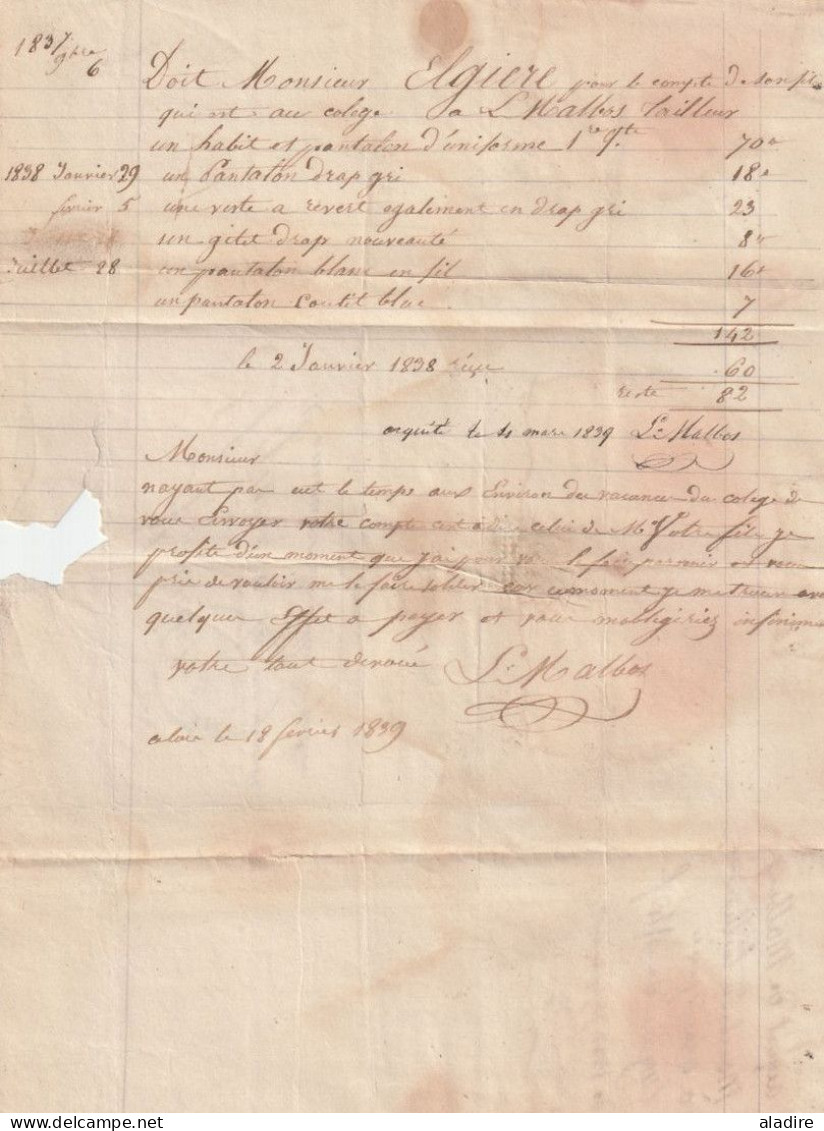 1837
9bre
6
Doit Monsieur Elgiere pour le compte de son fils
qui est au colege a L Malbos Tailleur
un habit et pantalon d'uniforme 1re qte 70"
1838 Janvier 29 un Pantalon drap gri 18"
fevrier 5 une veste a revert egalement en drap gri 23
un gilet drap nouveauté 8"
Juillet 28 un pantalon blanc en fil 16"
un pantalon Coutil blac. 7
142
le 2 Janvier 1838 réçu 60
reste 82
acquité le 11 mars 1839 Ls Malbos
Monsieur
nayant pas eut le temps aux Environ des vacances du colege de
vous Envoyer votre compte cest a dire celui de Mr Votre fils je
profite d'un moment que j'ai pour vous le faire parvenir et vous
prie de vouloir me le faire solder car ce moment je me trouve
quelques Effet a payer et vous mobligeriez
votre tout devoué Ls Malbos
alais le 18 fevrier 1839
aladire